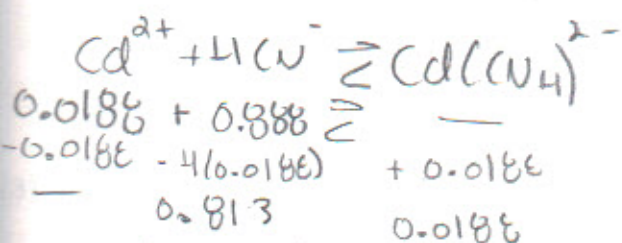 Cd²⁺ + 4CN⁻ ⇌ Cd(CN₄)²⁻
0.0188 + 0.888 ⇌ —
-0.0188 - 4(0.0188) + 0.0188
— 0.813 0.0188